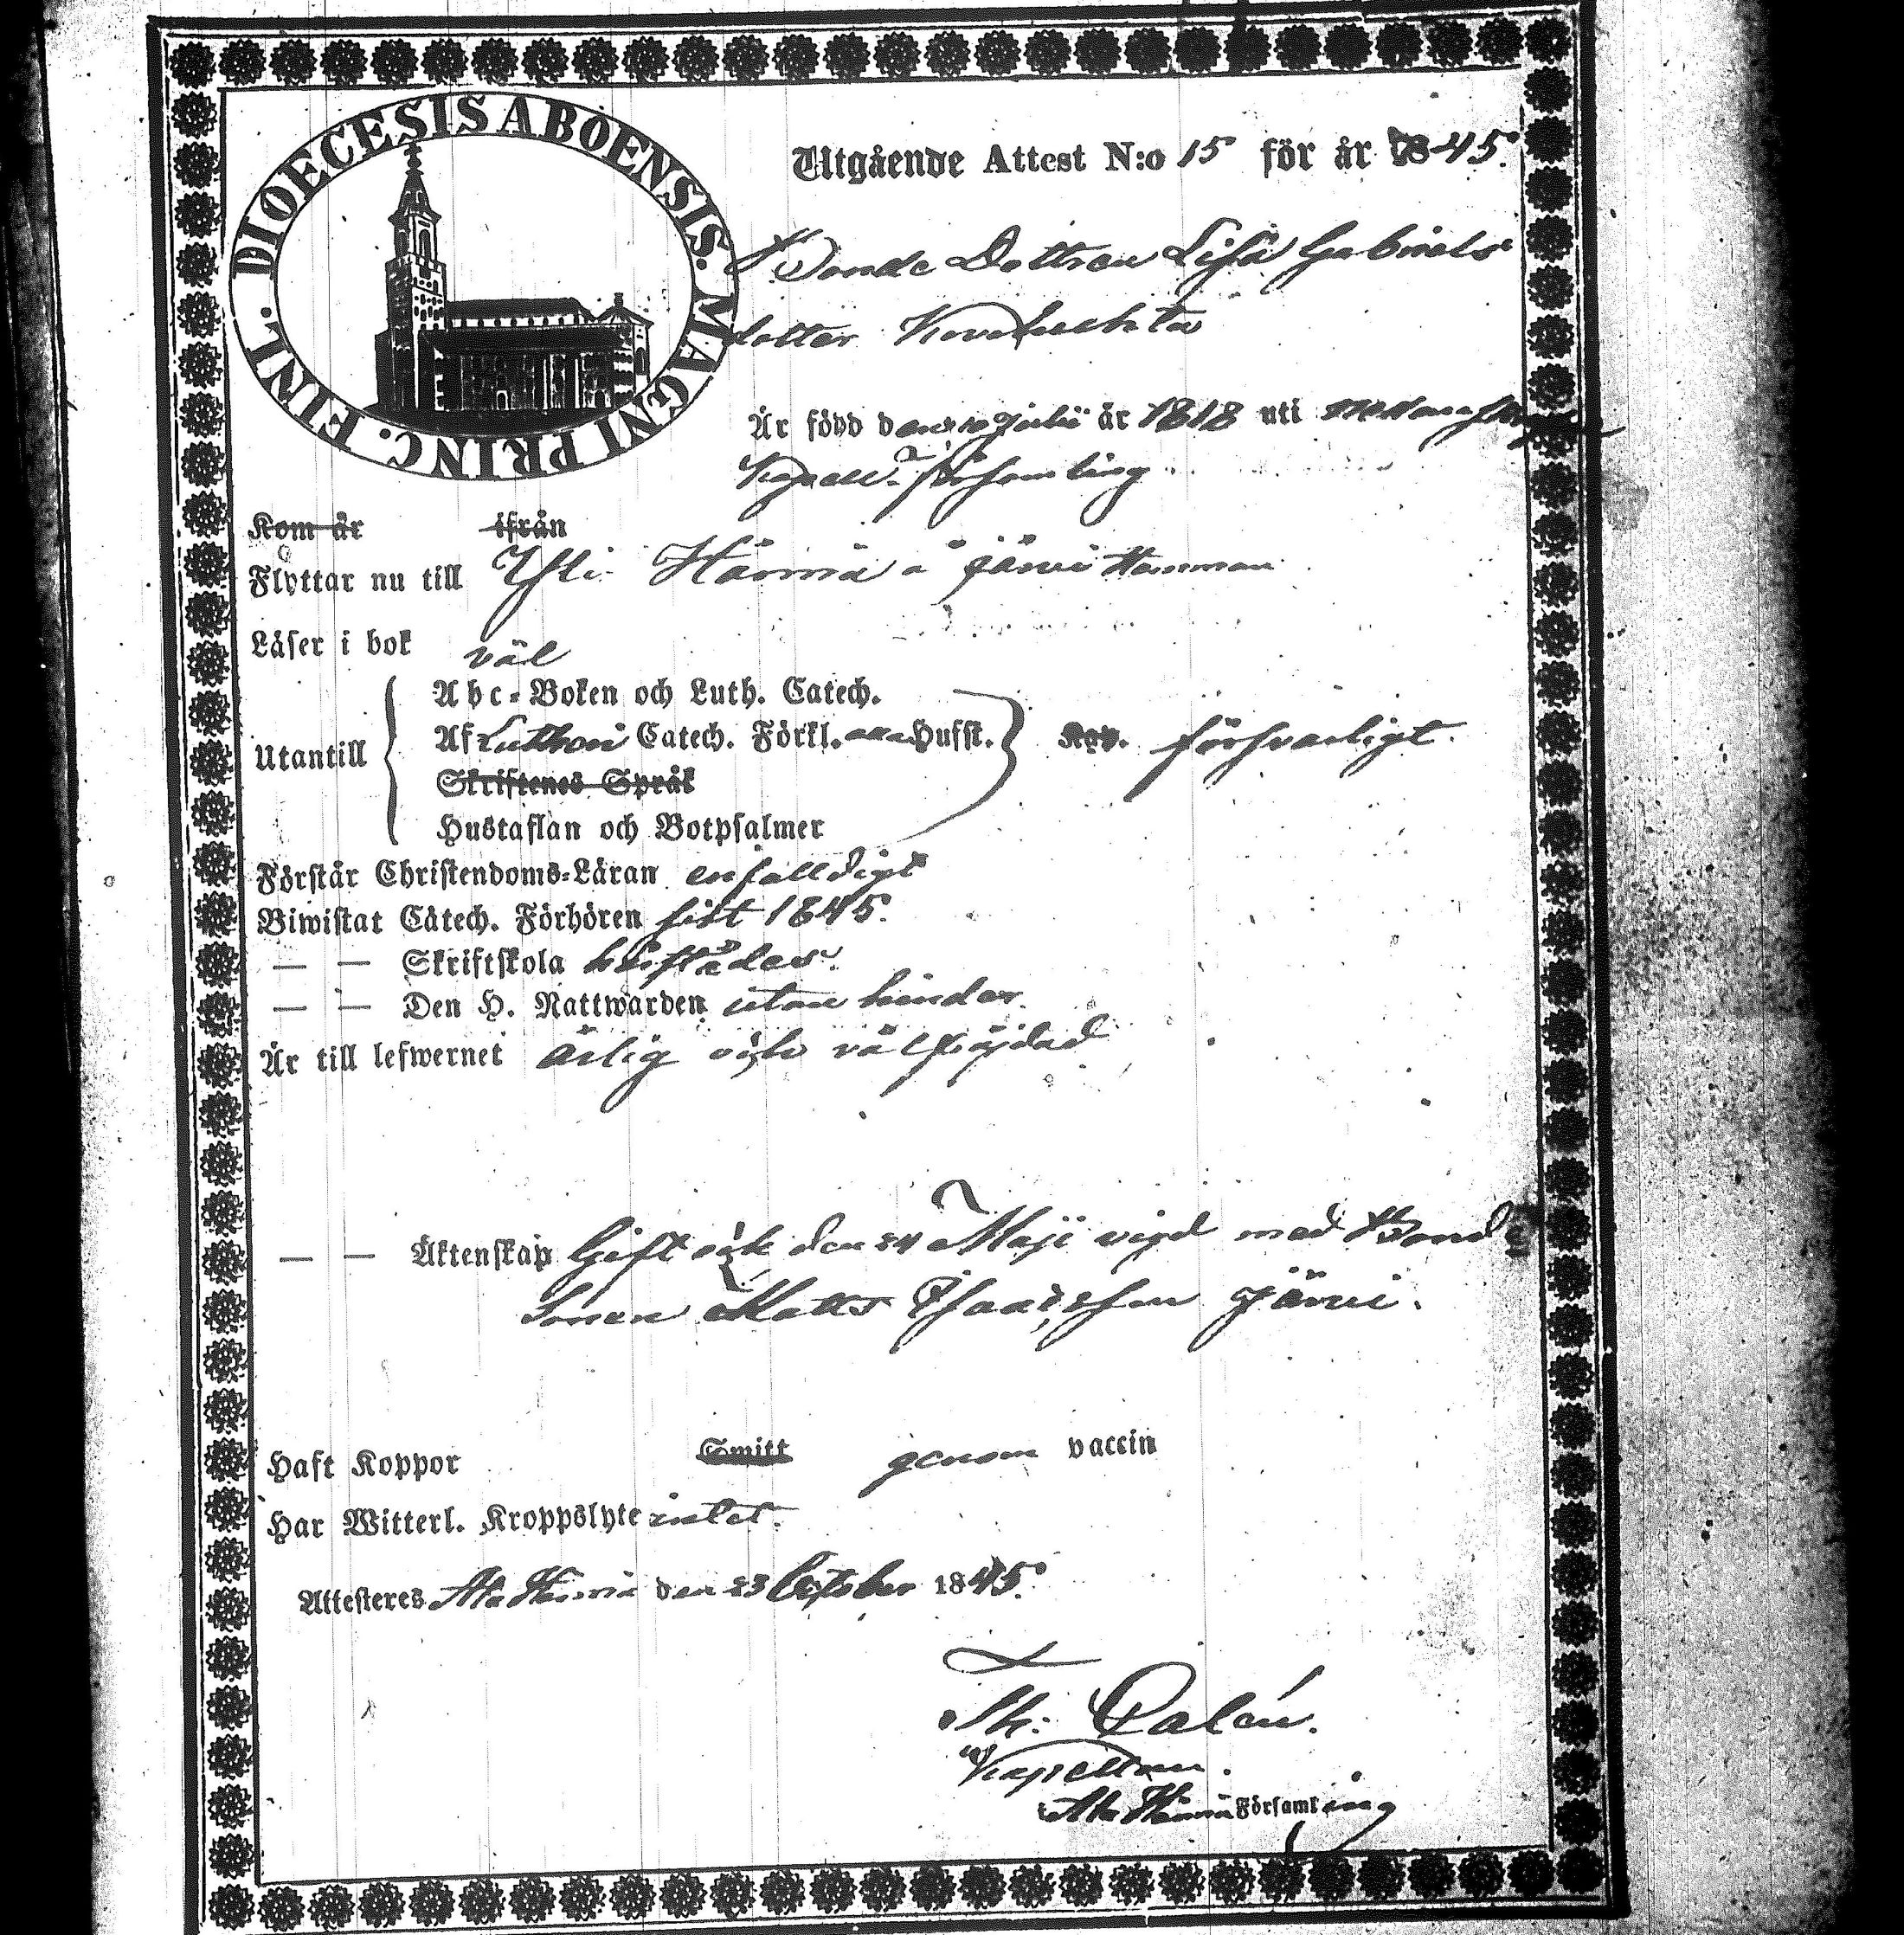 DIOECESIS ABOENSIS. MAGNI PRINC. FINL.
Utgående Attest N:o 15 för år 1845.
Bonde Dottren Lisa Gabriels
dotter
Är född den 10 Julii år 1818 uti
Kapell församling
Kom år ifrån
Flyttar nu till Yli Härmä å Järvi Hemman
Läser i bok väl
Abc-Boken och Luth. Catech.
Utantill Af Lutheri Catech. Förkl. alla Hufst. försvarligt.
Skriftenes Språk
Hustaflan och Botpsalmer
Förstår Christendoms-Läran enfalldigt
Biwistat Catech. Förhören sist 1845.
— — Skriftskola
— — Den H. Nattwarden utan hinder.
Är till lefwernet ärlig och välfräjdad
— — Äktenskap Gift och den 24 Maji vigd med Bonde
Sonen Matts Isaacsson Järvi.
Haft Koppor Smitt genom vaccin
Har Witterl. Kroppslyte intet.
Attesteres Ala Härmä den 23 October 1845.
Th: Dalén.
Kapellan.
Ala Härmä Församling